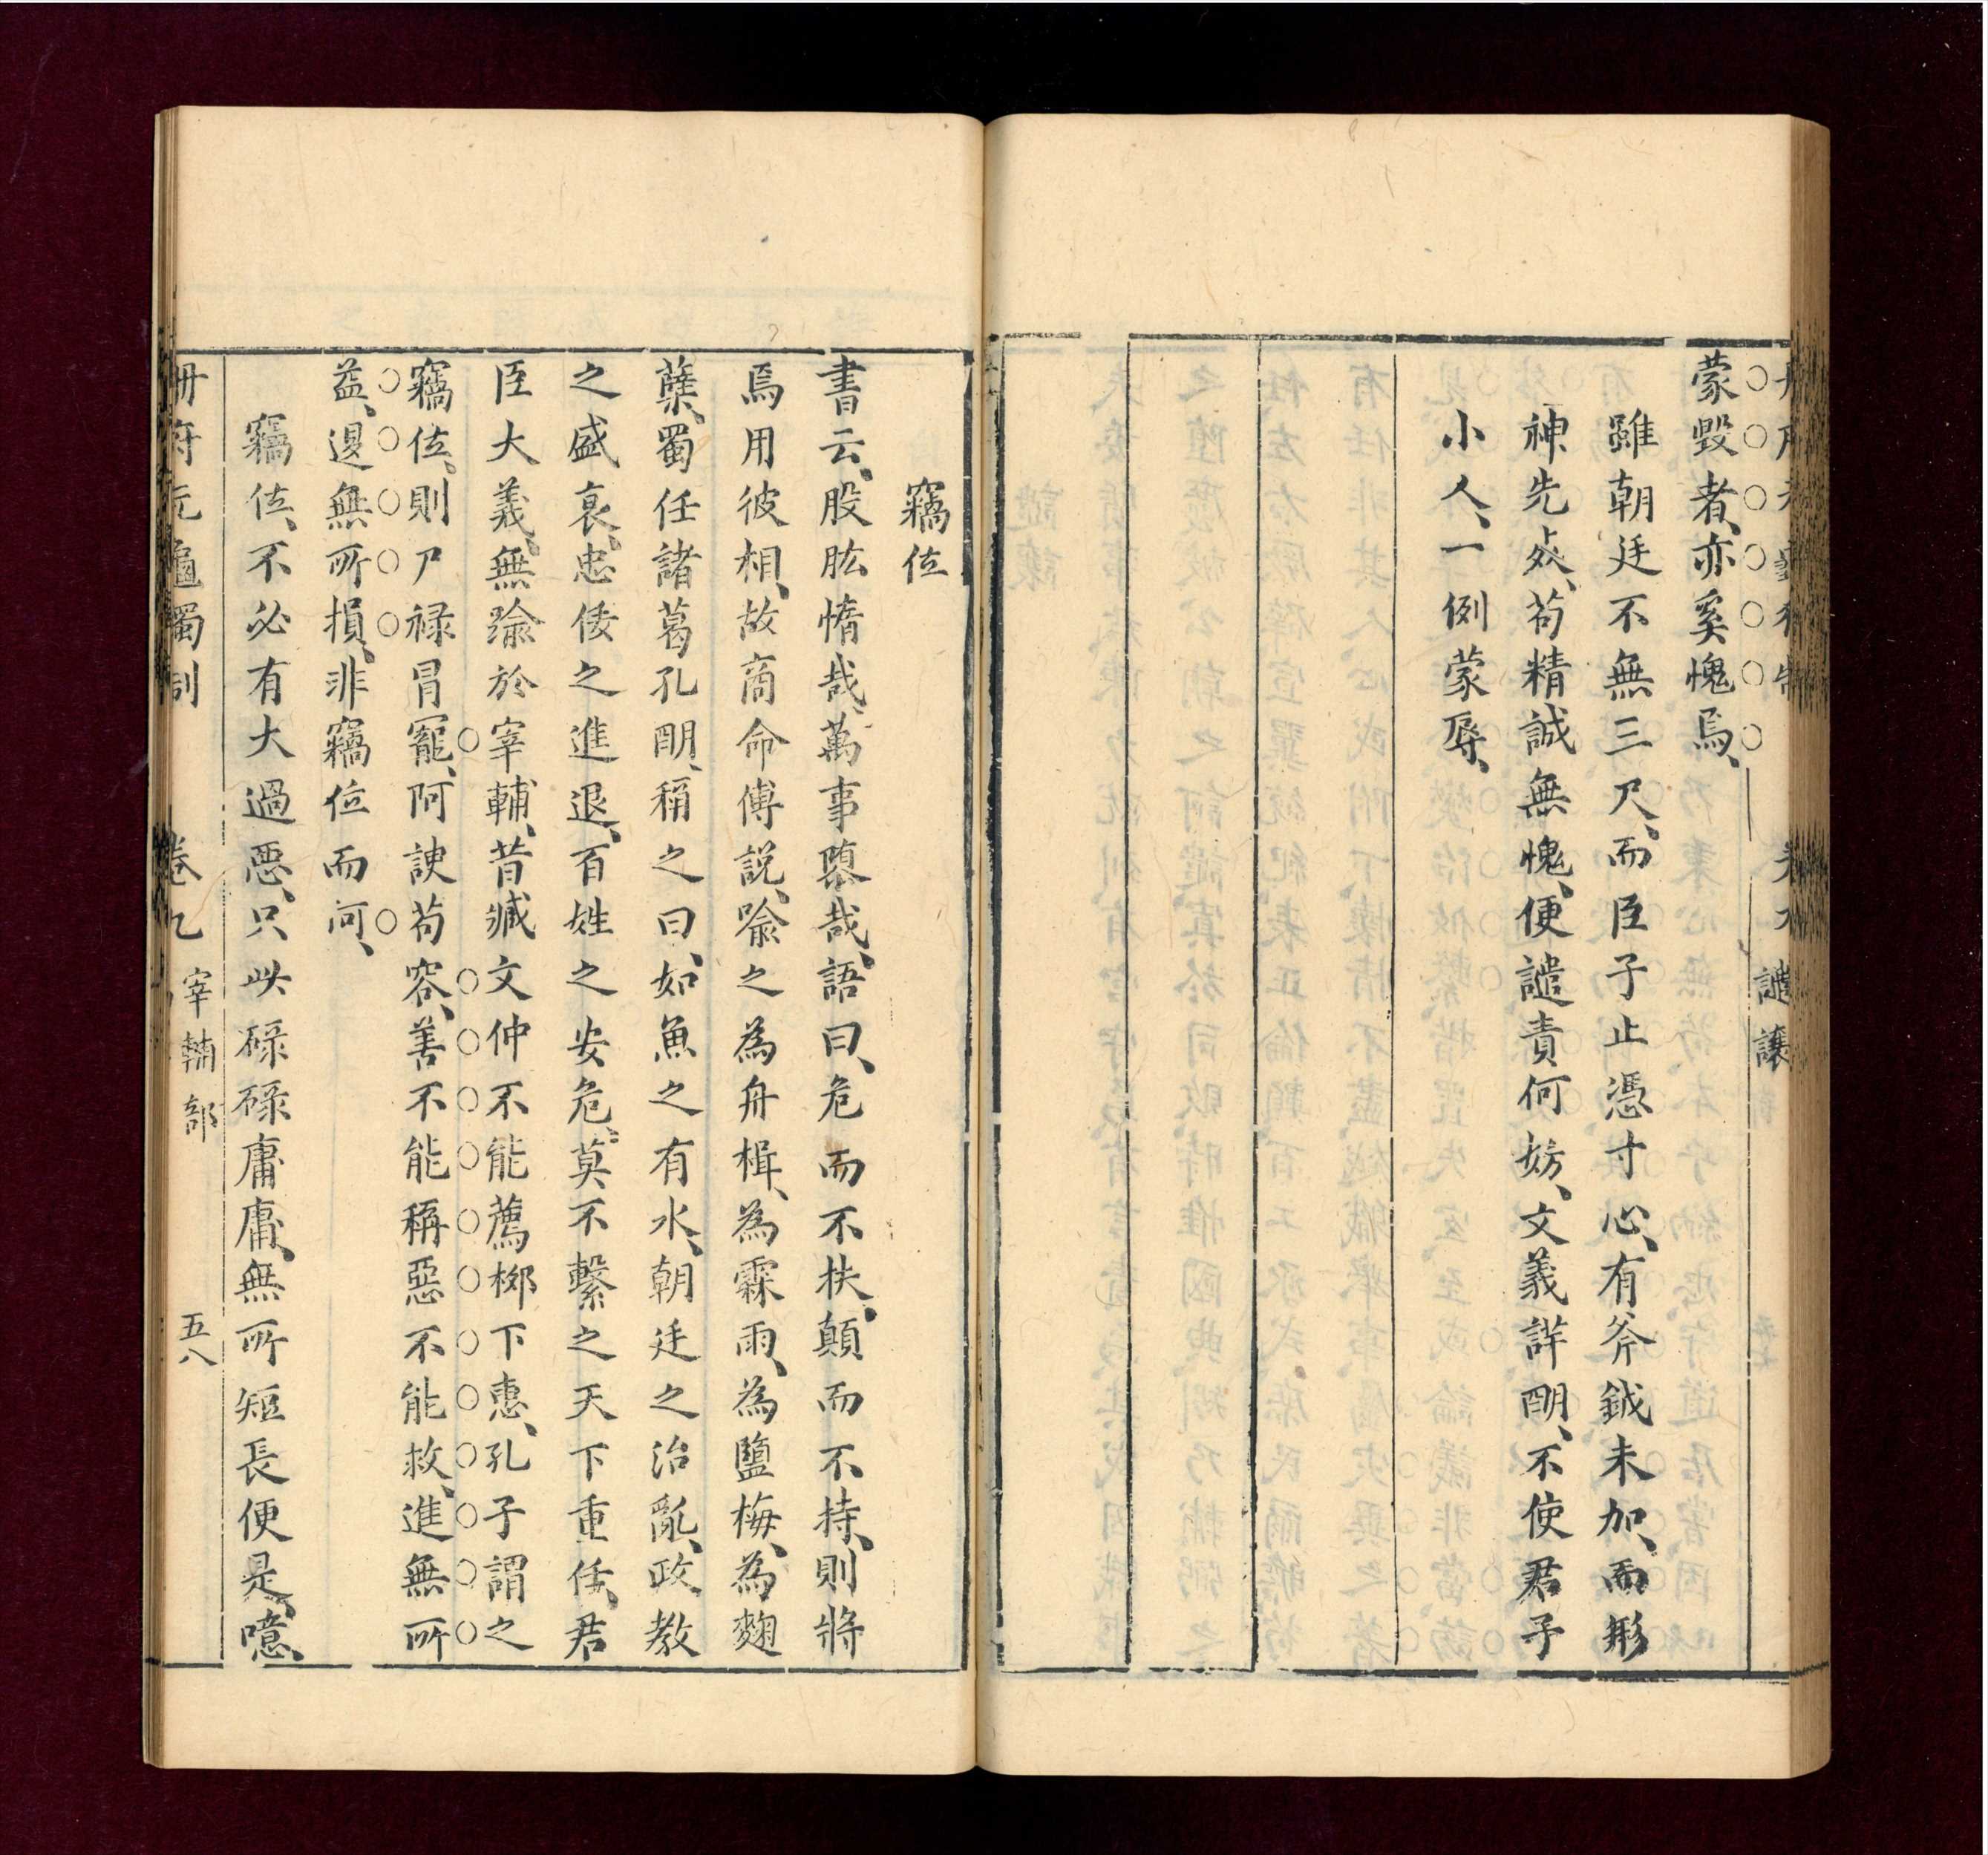 蒙毀者、亦奚愧焉、
雖朝廷不無三尺、而臣子止憑寸心、有斧鉞未加、而形
神先㷊、苟精誠無愧、便譴責何妨、文義詳明、不使君子
小人、一例蒙辱、
譴讓
竊位
書云、股肱惰哉、萬事隳哉、語曰、危而不扶、顛而不持、則將
焉用彼相、故商命傅說、喻之為舟楫、為霖雨、為鹽梅、為麴
糵、蜀任諸葛孔明、稱之曰、如魚之有水、朝廷之治亂、政教
之盛衰、忠佞之進退、百姓之安危、莫不繫之天下重任、君
臣大義、無踰於宰輔、昔臧文仲不能薦柳下惠、孔子謂之
竊位、則尸祿冒寵、阿諛苟容、善不能稱惡不能救、進無所
益、退無所損、非竊位而何、
竊位、不必有大過惡、只此碌碌庸庸、無所短長便是、噫、
冊府元龜獨制 卷九 宰輔部 五八